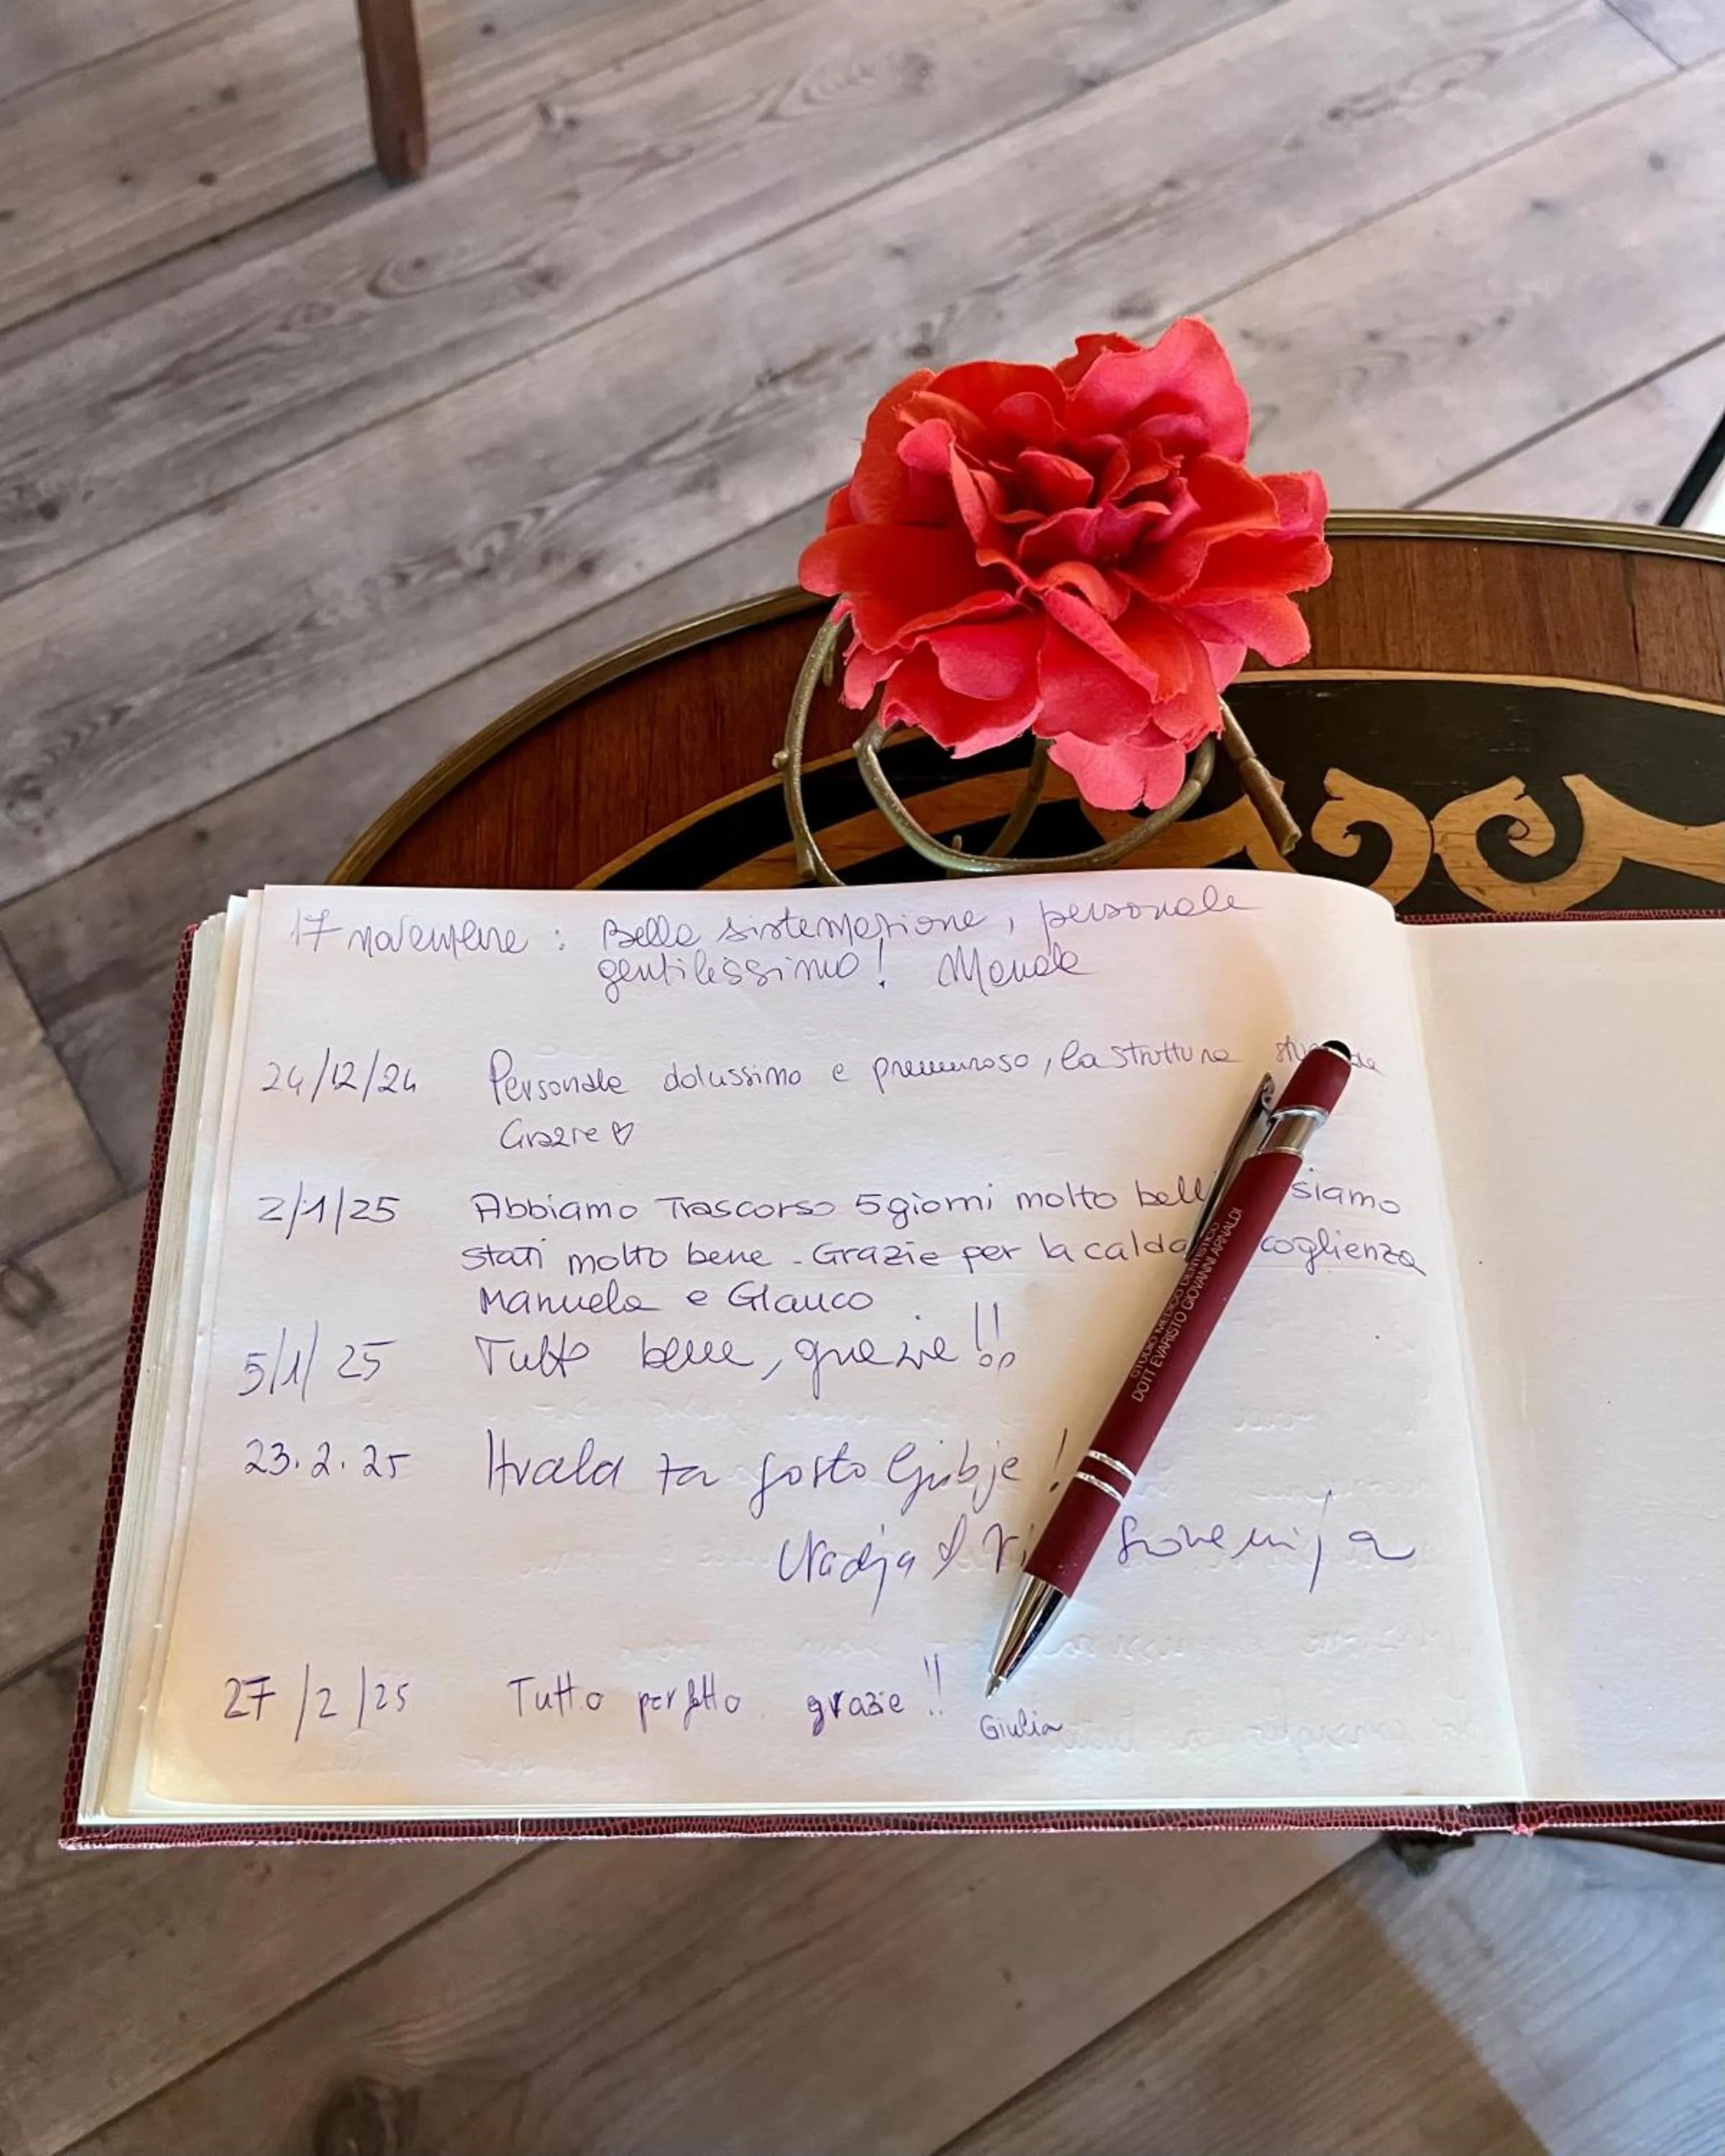 17 novembre : Bella sistemazione, personale
gentilissimo!
24/12/24 Personale dolcissimo e premuroso, la struttura
Grazie ♡
2/1/25 Abbiamo Trascorso 5 giorni molto siamo
stati molto bene - Grazie per la calda
Manuela e Glauco
5/1/25 Tutto bene, grazie!!
23.2.25 Hvala za gosto ljubje!
Nadja
27/2/25 Tutto perfetto grazie!!
Giulia
STUDIO MEDICO DENTISTICO
DOTT EVARISTO GIOVANNI ARNALDI